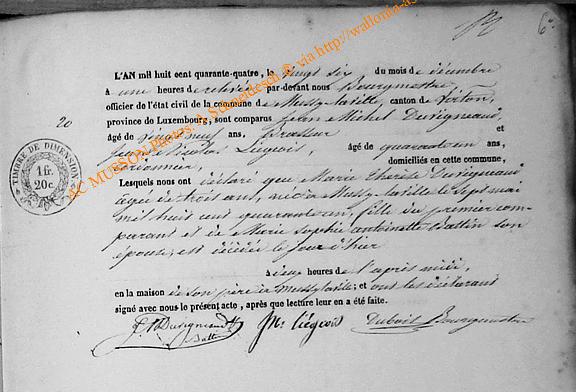 6
L'AN mil huit cent quarante-quatre, le vingt six du mois de décembre
à une heures de relevée par-devant nous Bourgmestre
officier de l'état civil de la commune de Mussy-la-ville, canton de Virton,
province de Luxembourg, sont comparus Jean Michel Duvigneaud,
20
âgé de neuf ans, Brasseur et
Jean Nicolas Liégeois, âgé de quarante un ans,
domiciliés en cette commune,
Lesquels nous ont déclaré que Marie Thérèse Duvigneaud
âgée de trois ans, née à Mussy-la-ville le sept mai
mil huit cent quarante un, fille du premier com-
parant et de Marie Sophie antoinette Battin son
épouse; est décédée le jour d'hier
à deux heures de l'après midi,
en la maison de son père à Mussy-la-ville; et ont les déclarant
signé avec nous le présent acte, après que lecture leur en a été faite.
Duvigneaud
Battin
Liégeois
Dubois Bourgmestre
TIMBRE DE DIMENSION
1 fr.
20 c.
AC MUSSON Photos: A. Schmedesch © via http://wallonia-as